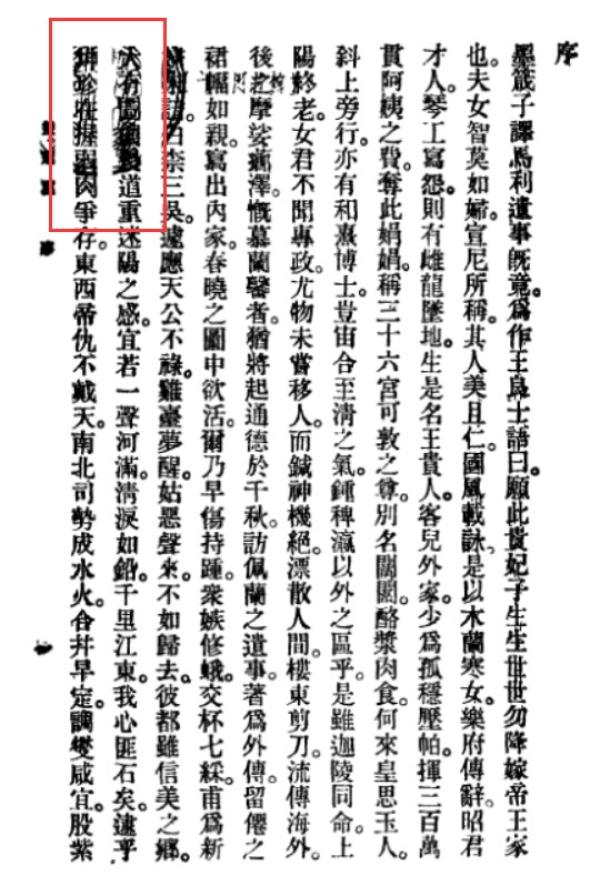 序
墨箴子譯馬利遺事既竟。爲作王烏士語曰。願此貴妃子生生世世勿降嫁帝王家
也。夫女智莫如婦。宣尼所稱。其人美且仁。國風載詠。是以木蘭寒女。樂府傳辭。昭君
才人。琴工寫怨。則有雌龍墜地。生是名王貴人。客兒外家。少爲孤穩壓帕。揮三百萬
貫阿姨之費。奪此娟娟。稱三十六宮可敦之尊。別名關關。酪漿肉食。何來皇思玉人。
斜上旁行。亦有和熹博士。豈宙合至淸之氣。鍾稗瀛以外之區乎。是雖迦陵同命。上
陽終老。女君不聞專政。尤物未嘗移人。而鍼神機絕。漂散人間。樓東剪刀。流傳海外。
後之摩娑薌澤。慨慕蘭馨者。猶將起通德於千秋。訪佩蘭之遺事。著爲外傳。留僊之
裙幅如親。寫出內家。春曉之圖中欲活。爾乃早傷持踵。衆嫉修蛾。交杯七綵。甫爲新
白柰三吳。遽應天公不祿。雞臺夢醒。姑惡聲來。不如歸去。彼都雖信美之鄉。
道重迷陽之感。宜若一聲河滿。淸淚如鉛。千里江東。我心匪石矣。乎
在握肉爭存。東西帝仇不戴天。南北司勢成水火。合幷早定。調燮咸宜。股紫
序